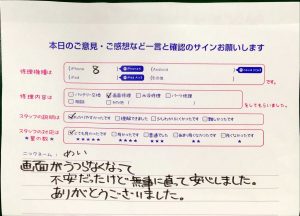 本日のご意見・ご感想など一言と確認のサインお願いします
修理機種は
iPhone 8
Android
iPad
その他
です。
修理内容は
バッテリー交換 画面修理 水没修理 パーツ修理
その他
をしてもらいました。
スタッフの説明は
わかりやすかったです 理解できました 少しわかりにくかったです 難しかったです
スタッフの対応は
とても良かったです 良かったです 普通でした 悪かったです
★星の数★
★★★★★ ★★★★ ★★★ ★★ ★
ニックネーム:
画面がうつらなくなって
不安だったけど無事に直って安心しました。
ありがとうございました。